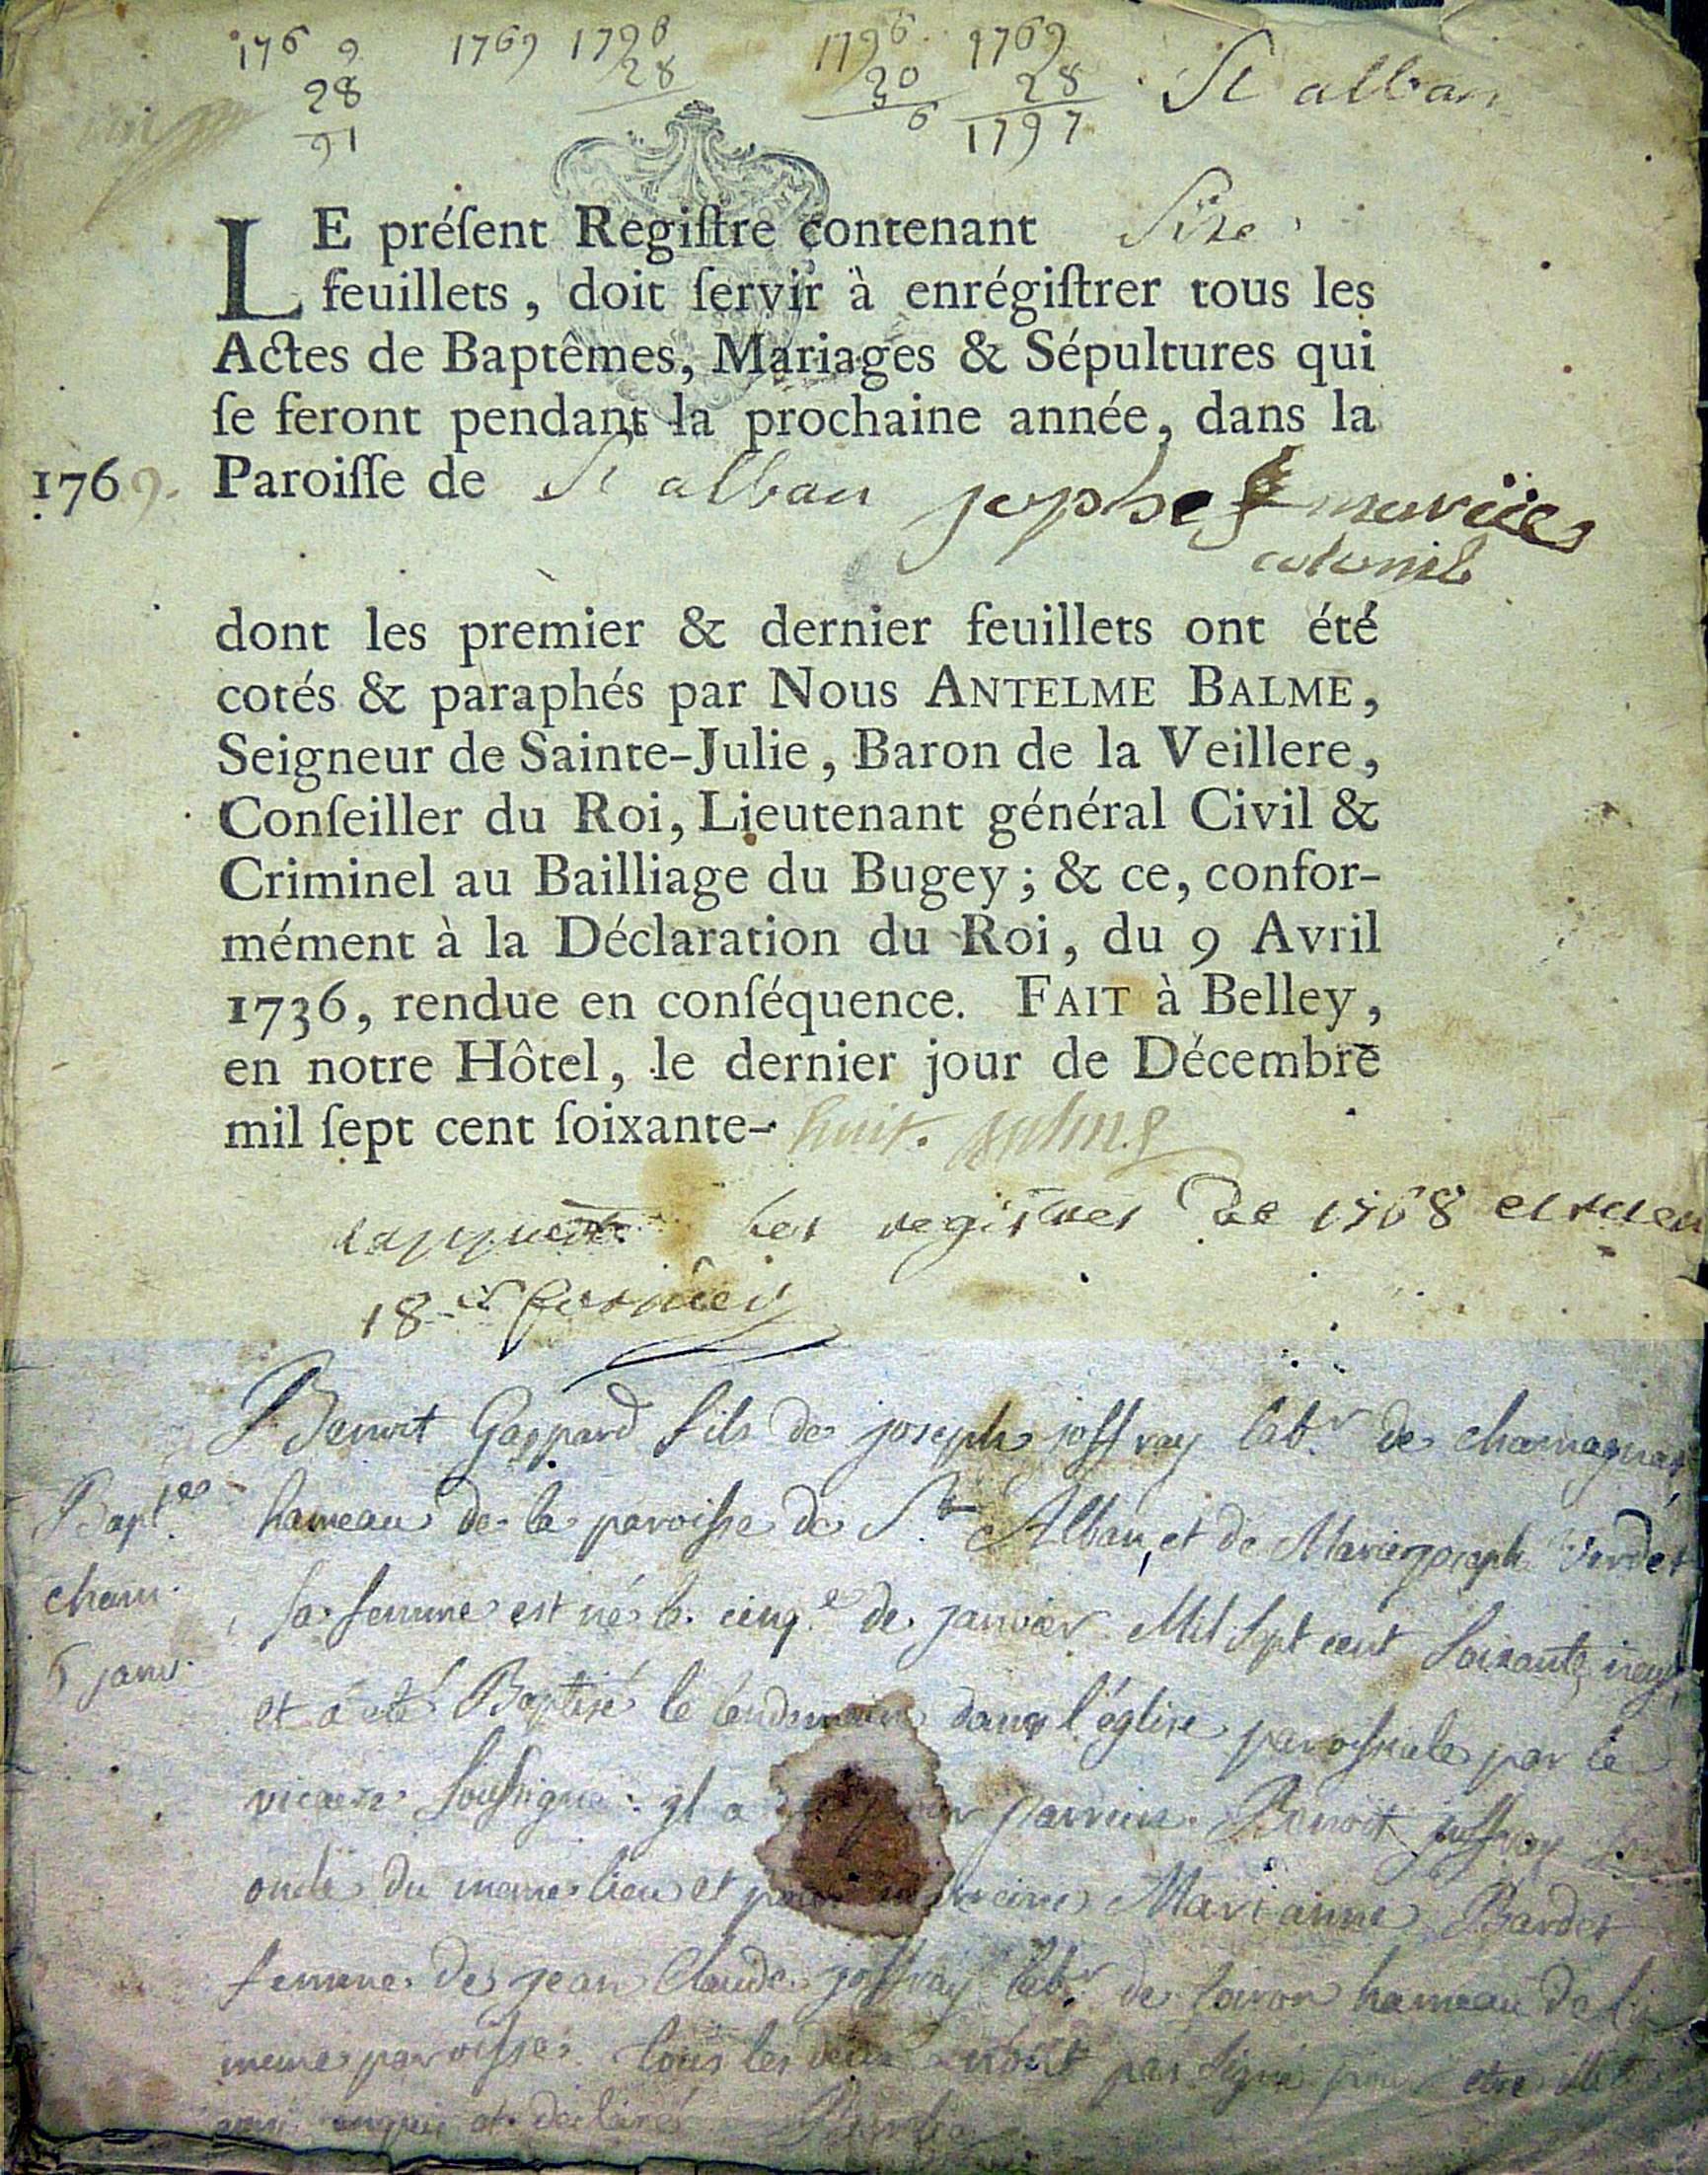 1769 1769 1796 1796 1769 St alban
28 28 20 28
91 6 1797
LE préſent Regiſtre contenant Size
feuillets, doit ſervir à enrégiſtrer tous les
Actes de Baptêmes, Mariages & Sépultures qui
ſe feront pendant la prochaine année, dans la
1769. Paroiſſe de St alban
dont les premier & dernier feuillets ont été
cotés & paraphés par Nous ANTELME BALME,
Seigneur de Sainte-Julie, Baron de la Veillere,
Conſeiller du Roi, Lieutenant général Civil &
Criminel au Bailliage du Bugey; & ce, confor-
mément à la Déclaration du Roi, du 9 Avril
1736, rendue en conſéquence. FAIT à Belley,
en notre Hôtel, le dernier jour de Décembre
mil ſept cent ſoixante- huit. Balme
les registres de 1768
18
Benoit Gaspard fils de joseph joffray lab.r de chamagnat
Bapt.ee hameau de la paroisse de St Alban, et de Mariejoseph
cham. sa femme est né le cinq.e de janvier Mil Sept cent Soixante neuf,
5 janv. et a eté Baptisé le lendemain dans l'église paroissiale par le
vicaire Soussigné: jl a parrein Benoit joffray son
oncle du meme lieu et pour marreine Marianne Bardet
femme de jean Claude joffray lab.r de hameau de la
meme paroisse. tous les deux n'ont pas signé pour etre illit.
enquis et declaré